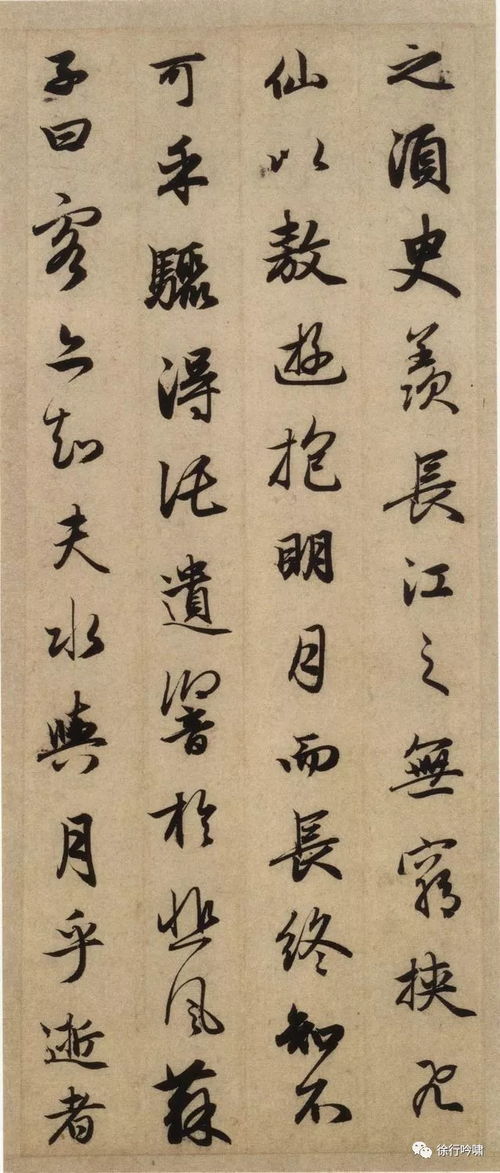 之須臾羨長江之無窮挾飛
仙以敖遊抱明月而長終知不
可乎驟得託遺響於悲風蘇
子曰客亦知夫水與月乎逝者
徐行吟啸